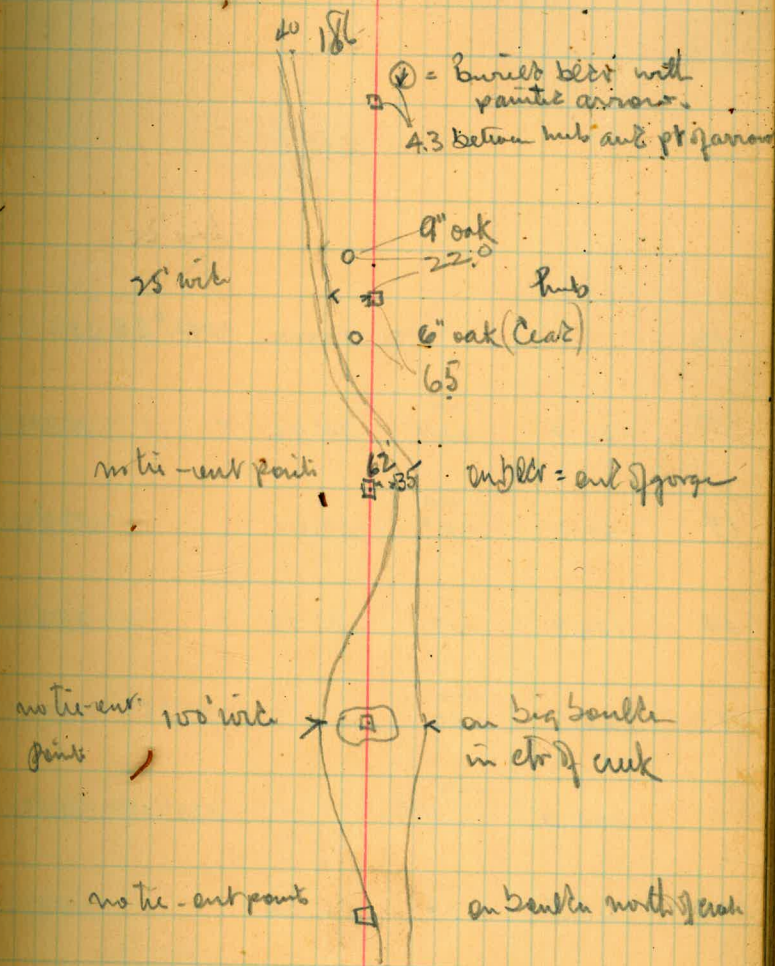 40 186
= buried bldr with
painted arrow.
4.3 between hub and pt of arrow
9" oak
22.0
25' wide
hub
6" oak (Dead)
65
62'
no tie-out points
35
on bldr = end of gorge
no tie-out
100' wide
on big boulder
points
in ctr of creek
no tie-out points
on boulder north of creek